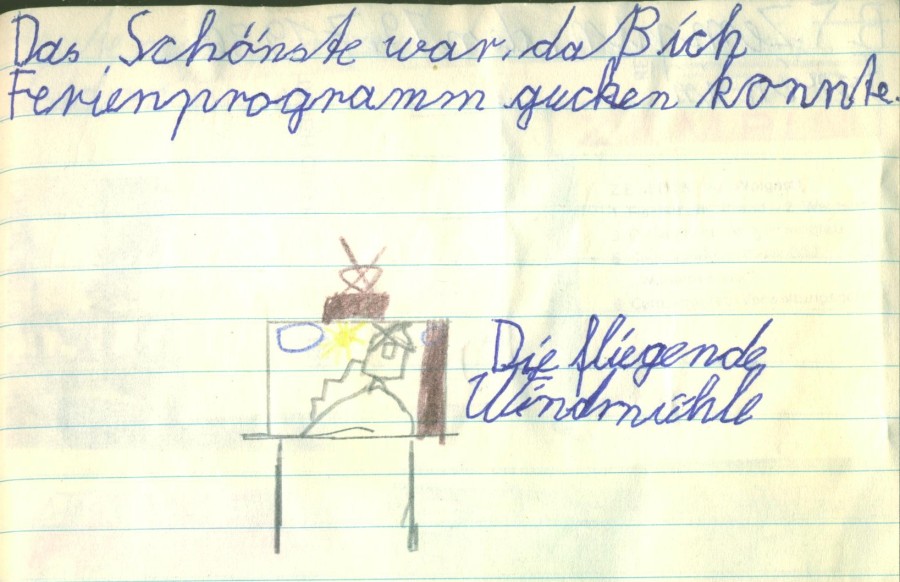 Das Schönste war, daß ich
Ferienprogramm gucken konnte.
Die fliegende
Windmühle